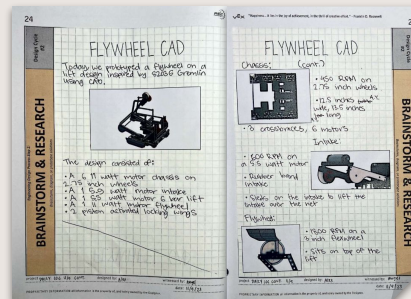 24
Design Cycle
#2
BRAINSTORM & RESEARCH
FLYWHEEL CAD
Today, we prototyped a flywheel on a
lift design inspired by 5203G Gremlin
using CAD.
The design consisted of:
• A 6 11 watt motor chassis on
2.75 inch wheels
• A 1 5.5 watt motor intake
• A 1 5.5 watt motor 6 bar lift
• A 1 11 watt motor flywheel
• 2 piston activated locking wings
project
designed by
witnessed by
date
VEX
"Happiness... it lies in the joy of achievement, in the thrill of creative effort." - Franklin D. Roosevelt
Design Cycle
#2
BRAINSTORM & RESEARCH
FLYWHEEL CAD
(cont.)
Chassis:
• 450 RPM on
2.75 inch wheels
wide, 13.5 inches
long
• 3 crossbraces, 6 motors
Intake:
• 600 RPM on
a 5.5 watt motor
• Rubber band
intake
intake over the net
Flywheel:
3 inch flywheel
• Sits on top of the
lift
project
designed by
witnessed by
date